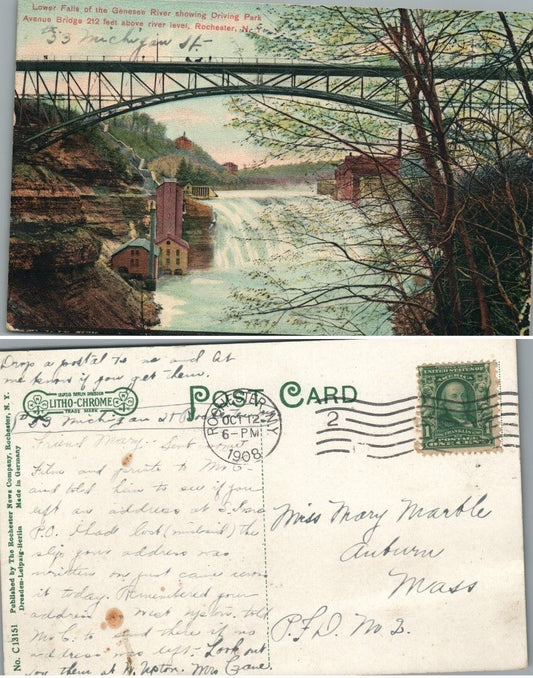 Lower Falls of the Genesee River showing Driving Park
Avenue Bridge 212 feet above river level, Rochester, N.Y.
53 Michigan St
Drop a postal to me and let
me know if you get them.
LEIPZIG BERLIN DRESDEN
LITHO-CHROME
TRADE MARK
POST CARD
ROCHESTER, N.Y.
OCT 12
6-PM
1908
2
UNITED STATES OF
AMERICA
1
POSTAGE
53 Michigan St Roch
Friend Mary - Sent
films and prints to Mr C-
and told him to see if you
left an address at
P.O. I had lost (mislaid) the
slip your address was
written on, just came across
it today. Remembered your
address West Upton. told
Mr C. to send there if no
address was left. Look out
for them at W. Upton. Mrs Crane.
Miss Mary Marble
Auburn
Mass
R.F.D. No 2.
No. C 13151 Published by The Rochester News Company, Rochester, N. Y.
Dresden-Leipzig-Berlin Made in Germany